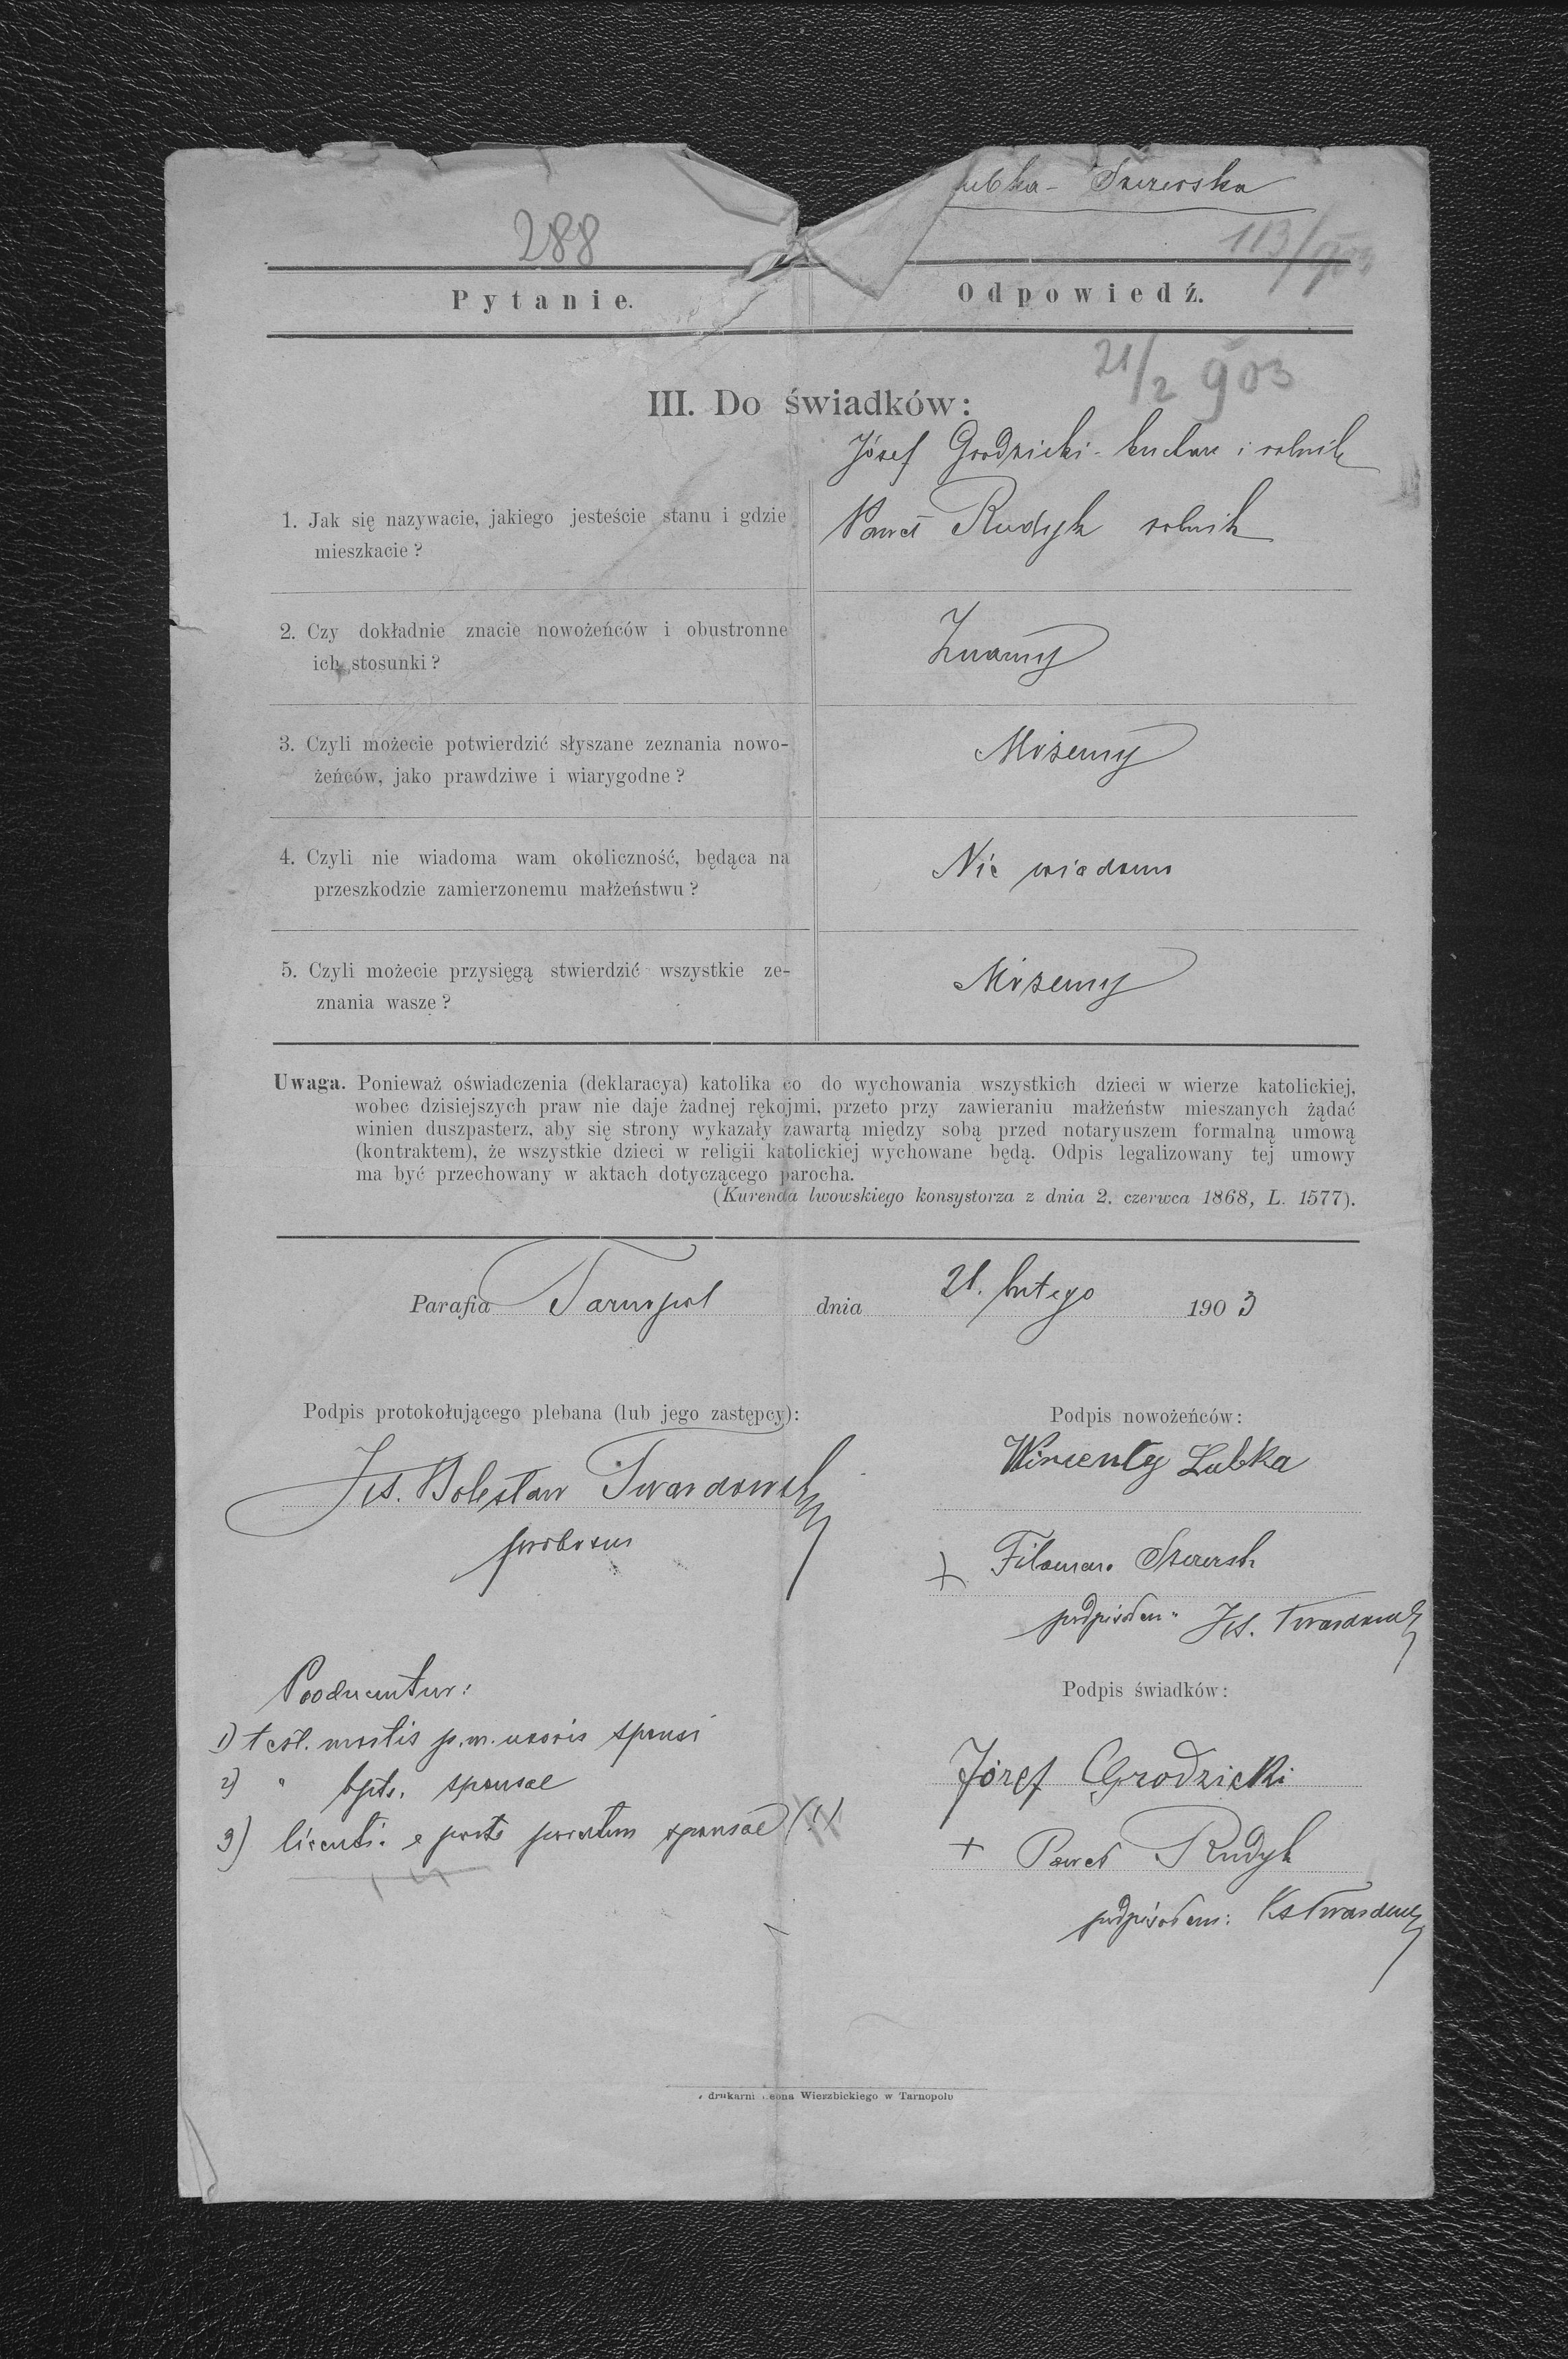 ubka - Szerska
288
113/903
Pytanie.
Odpowiedź.
21/2 903
III. Do świadków:
Józef Grodzicki - kucharz i rolnik
1. Jak się nazywacie, jakiego jesteście stanu i gdzie
mieszkacie?
Paweł Rudyk rolnik
2. Czy dokładnie znacie nowożeńców i obustronne
ich stosunki?
Znamy
3. Czyli możecie potwierdzić słyszane zeznania nowo-
żeńców, jako prawdziwe i wiarygodne?
Możemy
4. Czyli nie wiadoma wam okoliczność, będąca na
przeszkodzie zamierzonemu małżeństwu?
Nie wiadomo
5. Czyli możecie przysięgą stwierdzić wszystkie ze-
znania wasze?
Możemy
Uwaga. Ponieważ oświadczenia (deklaracya) katolika co do wychowania wszystkich dzieci w wierze katolickiej,
wobec dzisiejszych praw nie daje żadnej rękojmi, przeto przy zawieraniu małżeństw mieszanych żądać
winien duszpasterz, aby się strony wykazały zawartą między sobą przed notaryuszem formalną umową
(kontraktem), że wszystkie dzieci w religii katolickiej wychowane będą. Odpis legalizowany tej umowy
ma być przechowany w aktach dotyczącego parocha.
(Kurenda lwowskiego konsystorza z dnia 2. czerwca 1868, L. 1577).
Parafia Tarnopol dnia 21. lutego 1903
Podpis protokołującego plebana (lub jego zastępcy):
Podpis nowożeńców:
Wincenty Łubka
Ks. Bolesław Twardowski
proboszcz
+ Filomena
podpisałem: Ks. Twardowski
Producuntur:
Podpis świadków:
1) test. mortis p.m. uxoris sponsi
2) " bpts. sponsae
3) licenti. e parte parentum sponsae (!)
Józef Grodzicki
+ Paweł Rudyk
podpisałem: Ks Twardowski
drukarni Leona Wierzbickiego w Tarnopolu